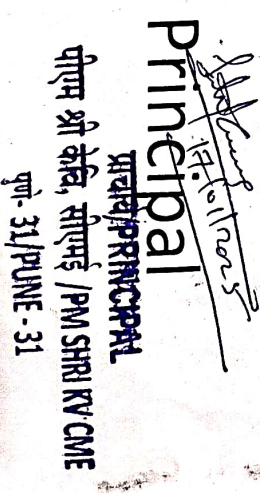 17/01/2025
Principal
प्राचार्य/PRINCIPAL
पीएम श्री केवि, सीएमई /PM SHRI KV CME
पुणे- 31/PUNE - 31